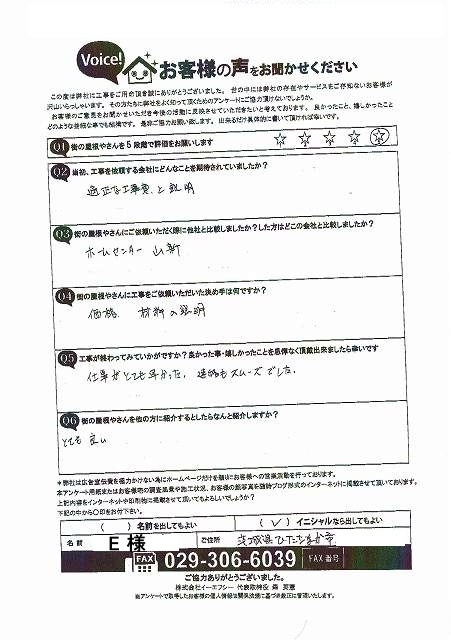 Voice!
お客様の声をお聞かせください
この度は弊社に工事をご用命頂き誠にありがとうございました。 世の中には弊社の存在やサービスをご存知ないお客様が
沢山いらっしゃいます。その方たちに弊社をよく知って頂くためのアンケートにご協力頂けないでしょうか。
お客様のご意見をお聞かせいただき今後の活動に反映させていただきたいと考えております。 良かったこと、嬉しかったこと
どのような些細な事でも結構です。 是非ご協力お願い致します。 出来るだけ具体的に書いて頂ければ幸いです。
Q1 街の屋根やさんを5段階で評価をお願いします
Q2 当初、工事を依頼する会社にどんなことを期待されていましたか?
適正な工事費と説明
Q3 街の屋根やさんにご依頼いただく際に他社と比較しましたか?した方はどこの会社と比較しましたか?
ホームセンター 山新
Q4 街の屋根やさんに工事をご依頼いただいた決め手は何ですか?
価格、材料の説明
Q5 工事が終わってみていかがですか?良かった事・嬉しかったことを忌憚なく頂戴出来ましたら幸いです
仕事がとても早かった、連絡もスムーズでした。
Q6 街の屋根やさんを他の方に紹介するとしたらなんと紹介しますか?
とても良い
*弊社は広告宣伝費を極力かけない為にホームページだけを頼りにお客様への営業活動を行っております。
本アンケート用紙またはお客様宅の調査風景や施工状況、お客様の顔写真を随時ブログ形式のインターネットに掲載させて頂いております。
上記内容をインターネットや印刷物に掲載させて頂いてもよろしいでしょうか?
下記の中から〇印をお付下さい。
( ) 名前を出してもよい ( ✓ ) イニシャルなら出してもよい
名前 E様 ご住所 茨城県ひたちなか市
FAX 029-306-6039 FAX番号
ご協力ありがとうございました。
株式会社イーエフシー 代表取締役 森 英憲
当アンケートで取得したお客様の個人情報は関係法規に基づき厳正に管理いたします。